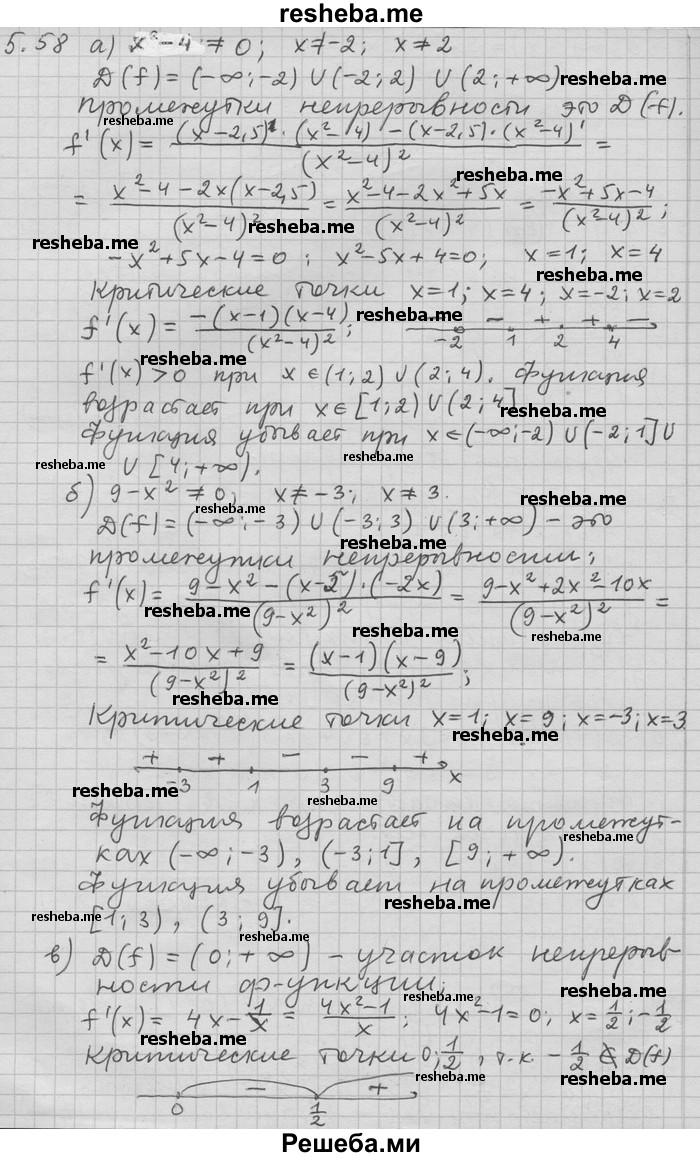 resheba.me
5.58 а) x²-4 ≠ 0; x≠-2; x≠2
D(f) = (-∞;-2) ∪ (-2;2) ∪ (2;+∞) resheba.me
resheba.me
Промежутки непрерывности это D(f).
resheba.me resheba.me
f'(x) = ((x-2,5)'·(x²-4) - (x-2,5)·(x²-4)')/(x²-4)² =
resheba.me
= (x²-4-2x(x-2,5))/(x²-4)² = (x²-4-2x²+5x)/(x²-4)² = (-x²+5x-4)/(x²-4)²;
resheba.me resheba.me
-x²+5x-4=0; x²-5x+4=0; x=1; x=4
resheba.me
Критические точки x=1; x=4; x=-2; x=2
f'(x) = -(x-1)(x-4)/(x²-4)²; resheba.me - - + + -
-2 1 2 4
resheba.me
f'(x)>0 при x∈(1;2) ∪ (2;4). Функция
resheba.me
возрастает при x∈[1;2) ∪ (2;4]
resheba.me
Функция убывает при x∈(-∞;-2) ∪ (-2;1] ∪
resheba.me ∪ [4;+∞). resheba.me
б) 9-x² ≠ 0; x≠-3; x≠3.
resheba.me
D(f) = (-∞;-3) ∪ (-3;3) ∪ (3;+∞) - это
resheba.me
промежутки непрерывности;
resheba.me
f'(x) = (9-x²-(x-5)·(-2x))/(9-x²)² = (9-x²+2x²-10x)/(9-x²)² =
resheba.me resheba.me
= (x²-10x+9)/(9-x²)² = (x-1)(x-9)/(9-x²)²;
resheba.me resheba.me
Критические точки x=1; x=9; x=-3; x=3
resheba.me
+ + - - +
-3 1 3 9 x
resheba.me resheba.me resheba.me
Функция возрастает на промежут-
resheba.me resheba.me
ках (-∞;-3), (-3;1], [9;+∞).
resheba.me
Функция убывает на промежутках
resheba.me
resheba.me [1;3), (3;9].
resheba.me
в) D(f) = (0;+∞) - участок непрерыв-
resheba.me
ности ф-ункции;
resheba.me resheba.me
f'(x) = 4x - 1/x = (4x²-1)/x; 4x²-1=0; x=1/2; -1/2
resheba.me
Критические точки 0; 1/2, т.к. -1/2 ∉ D(f)
resheba.me resheba.me resheba.me
- +
0 1/2
resheba.me
Решеба.ми